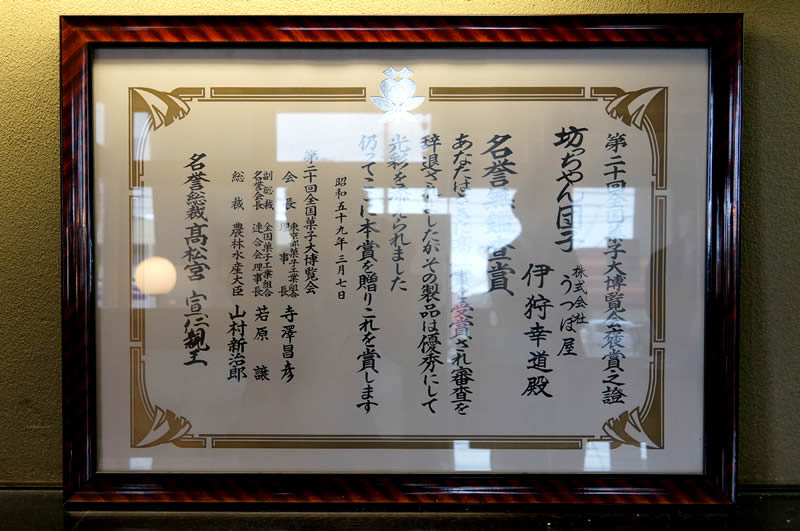 第二十回全国菓子大博覧会褒賞之證
坊っちゃん団子
株式会社
うつぼ屋
伊狩幸道殿
名誉無鑑査賞
あなたは 受賞され審査を
辞退されましたがその製品は優秀にして
光彩を添えられました
仍ってここに本賞を贈りこれを賞します
昭和五十九年三月七日
第二十回全国菓子大博覧会
会長 東京都菓子工業組合理事長 寺澤昌彦
副総裁 名誉会長 全国菓子工業組合連合会理事長 若原譲
総裁 農林水産大臣 山村新治郎
名誉総裁 高松宮宣仁親王